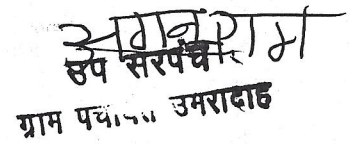 अगनुराम
उप सरपंच
ग्राम पंचायत उमरादाह